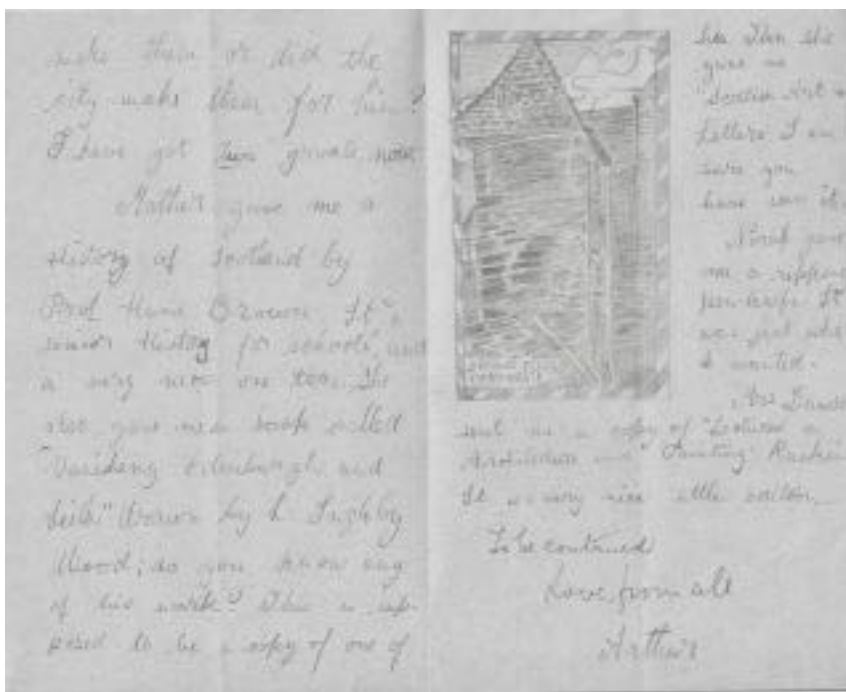 make them or did the
city make them for him?
I have got two private now
Mother gave me a
History of Scotland by
Prof Hume Brown. It's a
senior History for schools, and
a very nice one too. She
also gave me a book called
"Vanishing Edinburgh and
Leith" Drawn by L Ingleby
Wood; do you know any
of his work? This is sup-
posed to be a copy of one of
his Then she
gave me
"Scottish Art &
Letters I am
sure you
have seen it.
Norah gave
me a ripping
pen-knife It
was just what
I wanted.
Mrs
sent me a copy of "Lectures on
Architecture and Painting" Ruskin
It is a very nice little edition
To be continued
Love from all
Arthur